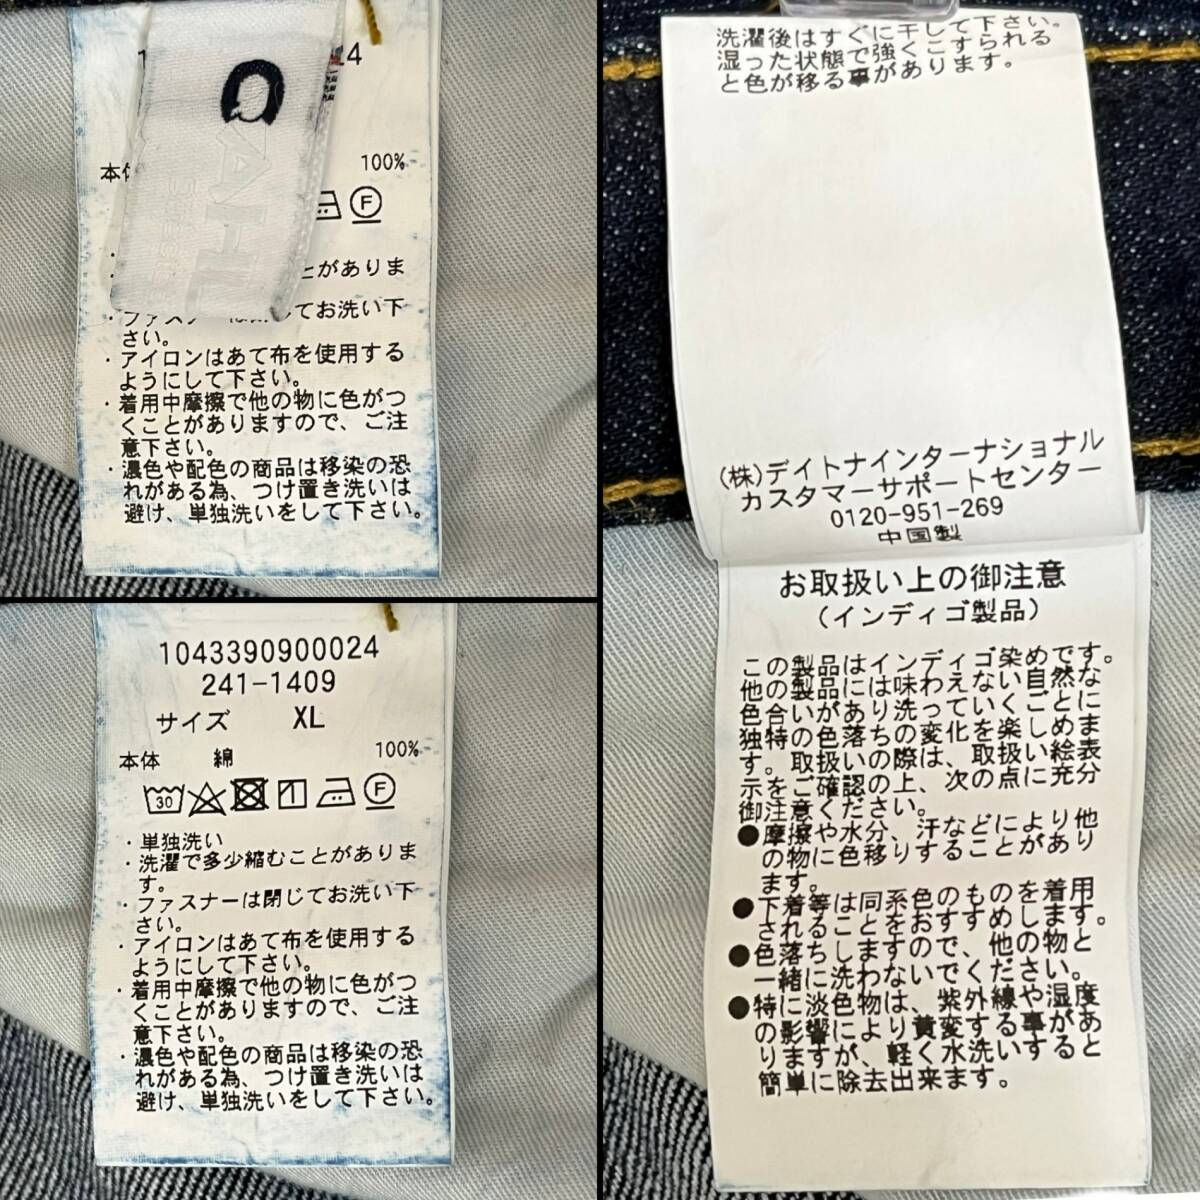 4
本体
100%
とがありま
・ファスナーは閉じてお洗い下
さい。
・アイロンはあて布を使用する
ようにして下さい。
・着用中摩擦で他の物に色がつ
くことがありますので、ご注
意下さい。
・濃色や配色の商品は移染の恐
れがある為、つけ置き洗いは
避け、単独洗いをして下さい。
1043390900024
241-1409
サイズ XL
本体 綿 100%
30
・単独洗い
・洗濯で多少縮むことがありま
す。
・ファスナーは閉じてお洗い下
さい。
・アイロンはあて布を使用する
ようにして下さい。
・着用中摩擦で他の物に色がつ
くことがありますので、ご注
意下さい。
・濃色や配色の商品は移染の恐
れがある為、つけ置き洗いは
避け、単独洗いをして下さい。
洗濯後はすぐに干して下さい。
湿った状態で強くこすられる
と色が移る事があります。
(株)デイトナインターナショナル
カスタマーサポートセンター
0120-951-269
中国製
お取扱い上の御注意
(インディゴ製品)
この製品はインディゴ染めです。
他の製品には味わえない自然な
色合いがあり洗っていくごとに
独特の色落ちの変化を楽しめま
す。取扱いの際は、取扱い絵表
示をご確認の上、次の点に充分
御注意ください。
●摩擦や水分、汗などにより他
の物に色移りすることがあり
ます。
●下着等は同系色のものを着用
されることをおすすめします。
●色落ちしますので、他の物と
一緒に洗わないでください。
●特に淡色物は、紫外線や湿度
の影響により黄変する事があ
りますが、軽く水洗いすると
簡単に除去出来ます。